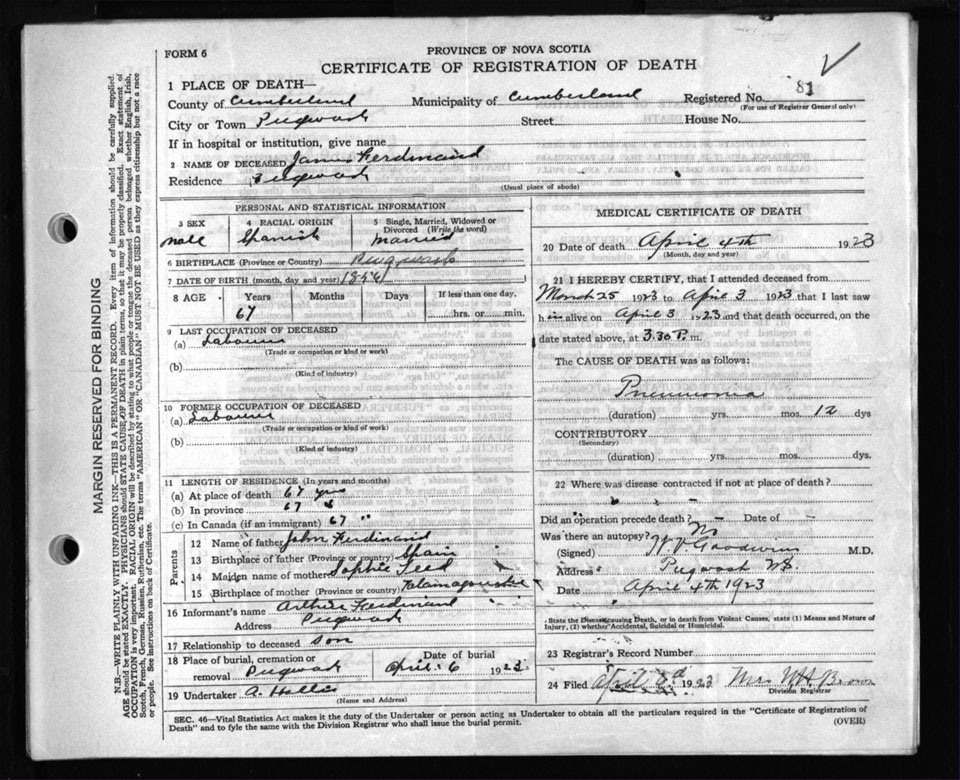 FORM 6
PROVINCE OF NOVA SCOTIA
CERTIFICATE OF REGISTRATION OF DEATH
1 PLACE OF DEATH—
County of Cumberland Municipality of Cumberland Registered No. 81
(For use of Registrar General only)
City or Town Pugwash Street House No.
If in hospital or institution, give name
2 NAME OF DECEASED James Ferdinand
Residence Pugwash
(Usual place of abode)
PERSONAL AND STATISTICAL INFORMATION
3 SEX
Male
4 RACIAL ORIGIN
Spanish
5 Single, Married, Widowed or
Divorced (Write the word)
Married
6 BIRTHPLACE (Province or Country) Pugwash
7 DATE OF BIRTH (month, day and year) (1856)
8 AGE Years Months Days If less than one day,
67 hrs. or min.
9 LAST OCCUPATION OF DECEASED
(a) Labourer
(Trade or occupation or kind or work)
(b)
(Kind of industry)
10 FORMER OCCUPATION OF DECEASED
(a) Labourer
(Trade or occupation or kind of work)
(b)
(Kind of industry)
11 LENGTH OF RESIDENCE (In years and months)
(a) At place of death 67 yrs
(b) In province 67 "
(c) In Canada (if an immigrant) 67 "
Parents
12 Name of father John Ferdinand
13 Birthplace of father (Province or country) Spain
14 Maiden name of mother Sophie Teed
15 Birthplace of mother (Province or country)
16 Informant's name Arthur Ferdinand
Address Pugwash
17 Relationship to deceased son
18 Place of burial, cremation or
removal Pugwash
Date of burial
April 6 1923
19 Undertaker A. Hollis
(Name and Address)
MEDICAL CERTIFICATE OF DEATH
20 Date of death April 4th 1923
(Month, day and year)
21 I HEREBY CERTIFY, that I attended deceased from
March 25 1923 to April 3 1923 that I last saw
h im alive on April 3 1923 and that death occurred, on the
date stated above, at 3.30 P. m.
The CAUSE OF DEATH was as follows:
Pneumonia
(duration) yrs. mos. 12 dys
CONTRIBUTORY
(Secondary)
(duration) yrs. mos. dys.
22 Where was disease contracted if not at place of death?
Did an operation precede death? No Date of
Was there an autopsy?
(Signed) Goodwin M.D.
Address Pugwash NS.
Date April 4th 1923
State the Disease causing Death, or in death from Violent Causes, state (1) Means and Nature of
Injury, (2) whether Accidental, Suicidal or Homicidal.
23 Registrar's Record Number
24 Filed April 1923 Mrs W H Brown
Division Registrar
SEC. 46—Vital Statistics Act makes it the duty of the Undertaker or person acting as Undertaker to obtain all the particulars required in the "Certificate of Registration of
Death" and to fyle the same with the Division Registrar who shall issue the burial permit.
(OVER)
MARGIN RESERVED FOR BINDING
N.B.—WRITE PLAINLY WITH UNFADING INK—THIS IS A PERMANENT RECORD. Every item of information should be carefully supplied.
AGE should be stated EXACTLY. PHYSICIANS should STATE CAUSE OF DEATH in plain terms, so that it may be properly classified. Exact statement of
OCCUPATION is very important. RACIAL ORIGIN will be described by stating to what people or tongue the deceased person belonged whether English, Irish,
Scotch, French, German, Russian, Ruthenian, etc. The terms "AMERICAN" OR "CANADIAN" MUST NOT BE USED as they express citizenship but not a race
or people. See instructions on back of Certificate.